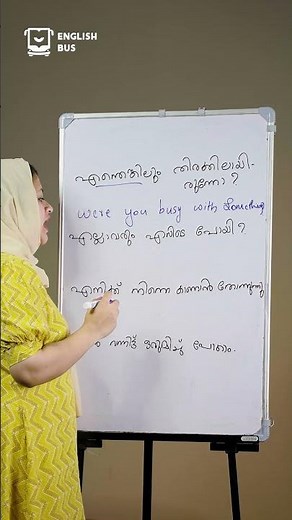 ENGLISH
BUS
എന്തെങ്കിലും തിരക്കിലായി-
രുന്നോ?
were you busy with Something
എല്ലാവരും എവിടെ പോയി?
എനിക്ക് നിന്നെ കാണാൻ തോന്നുന്നു
വന്നിട്ട് ഒരുമിച്ച് പോകാം.